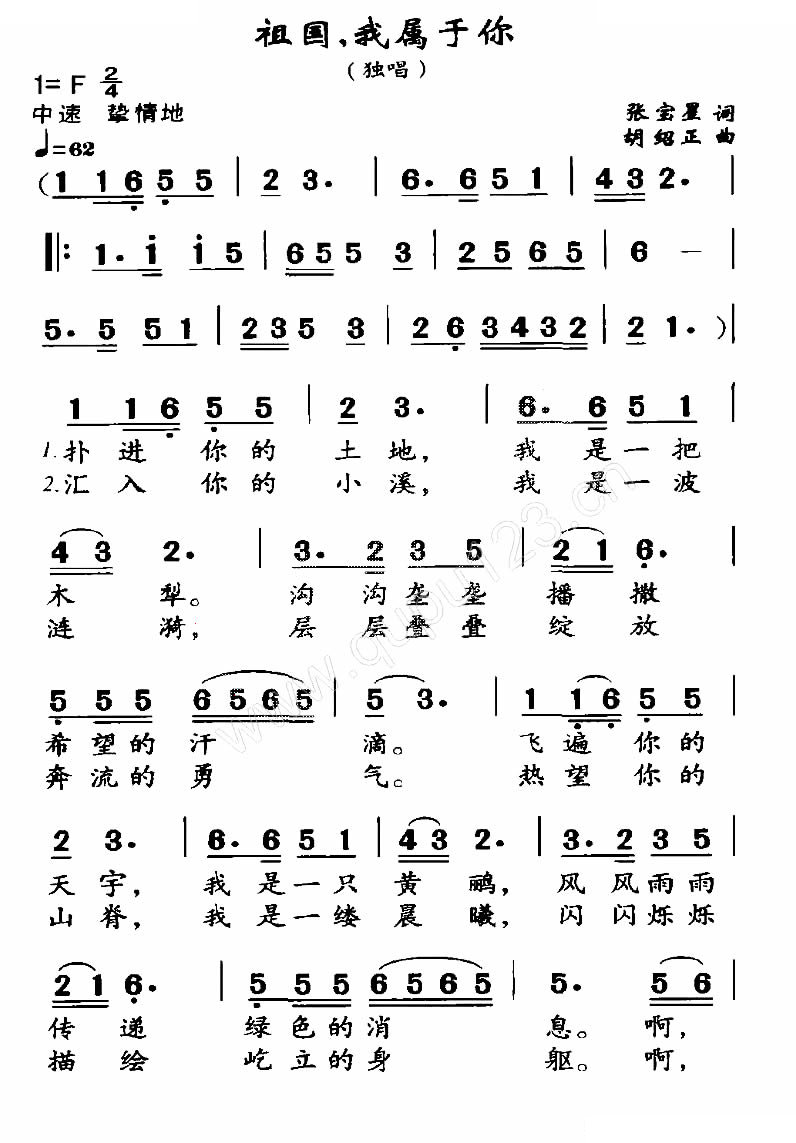 祖国,我属于你
(独唱)
1=F 2/4
中速 挚情地
张宝星 词
♩=62
胡绍正 曲
(1 1 6 5 5 | 2 3. | 6. 6 5 1 | 4 3 2. |
‖: 1. i i 5 | 6 5 5 5 3 | 2 5 6 5 | 6 - |
5. 5 5 1 | 2 3 5 3 | 2 6 3 4 3 2 | 2 1. )|
1 1 6 5 5 | 2 3. | 6. 6 5 1 |
1.扑进你的土地, 我是一把
2.汇入你的小溪, 我是一波
4 3 2. | 3. 2 3 5 | 2 1 6. |
木犁。 沟沟垄垄播撒
涟漪, 层层叠叠绽放
5 5 5 6 5 6 5 | 5 3. | 1 1 6 5 5 |
希望的汗滴。 飞遍你的
奔流的勇气。 热望你的
2 3. | 6. 6 5 1 | 4 3 2. | 3. 2 3 5 |
天宇, 我是一只黄鹂, 风风雨雨
山脊, 我是一缕晨曦, 闪闪烁烁
2 1 6. | 5 5 5 6 5 6 5 | 5. 5 6 |
传递 绿色的消息。啊,
描绘 屹立的身躯。啊,
www.qupu123.cn